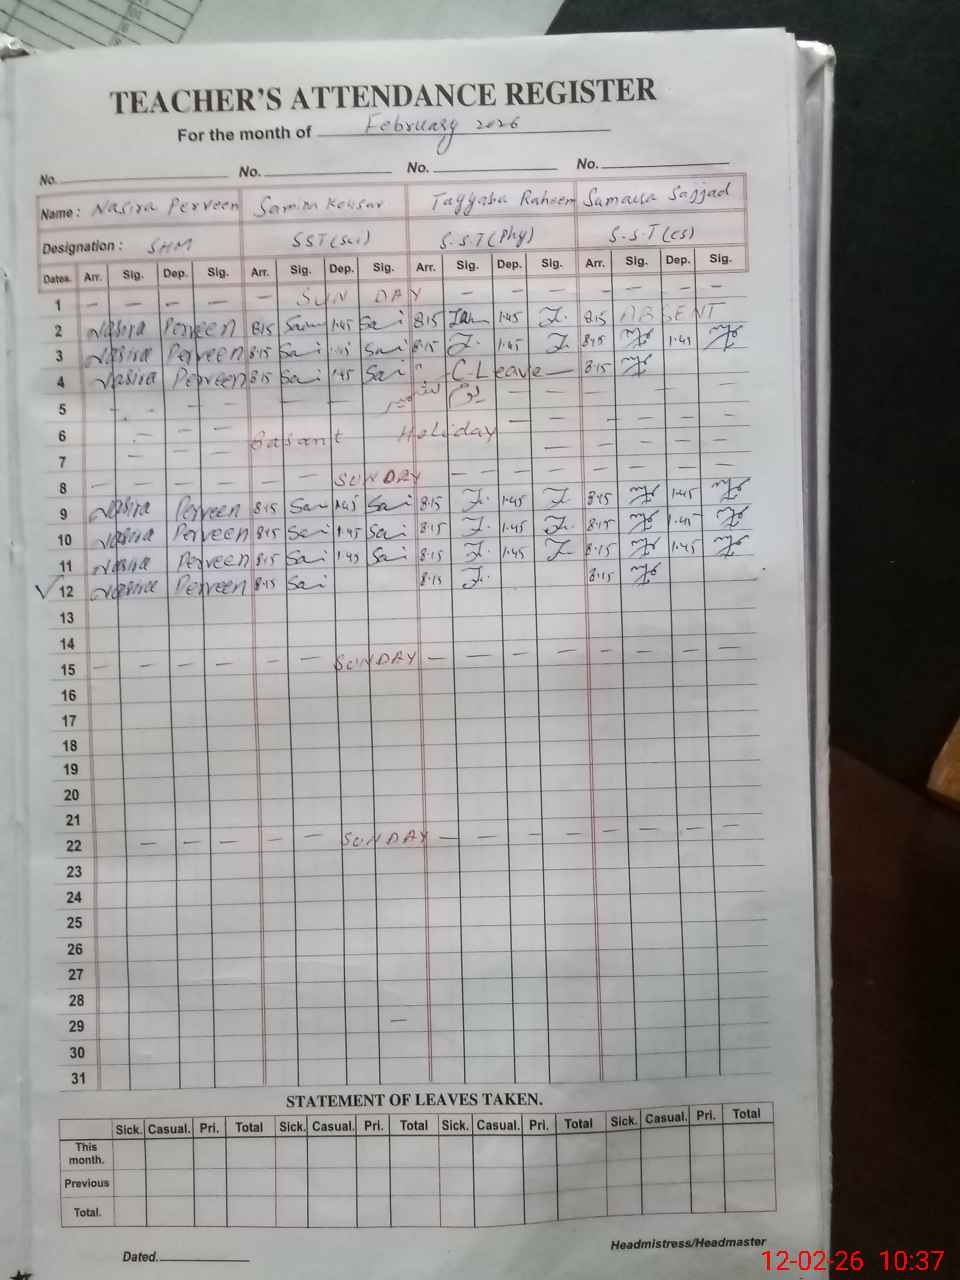 TEACHER'S ATTENDANCE REGISTER
For the month of February 2026
No. No. No. No.
Name : Nasira Perveen Samina Kousar Tayyaba Raheem Samaira Sajjad
Designation : SHM SST (Sci) S.S.T (Phy) S.S.T (CS)
Dates. Arr. Sig. Dep. Sig. Arr. Sig. Dep. Sig. Arr. Sig. Dep. Sig. Arr. Sig. Dep. Sig.
1 — — — — — SUN DAY — — — — — — —
2 Nasira Perveen 8:15 1:45 8:15 1:45 8:15 ABSENT
3 Nasira Perveen 8:15 8:15 1:45 8:15 1:45
4 Nasira Perveen 8:15 1:45 C-Leave — 8:15
5
6 Basant Holiday
7
8 — — — — — — SUNDAY — — — — — — —
9 Nasira Perveen 8:15 1:45 8:15 1:45 8:15 1:45
10 Nasira Perveen 8:15 1:45 8:15 1:45 8:15 1:45
11 Nasira Perveen 8:15 1:45 8:15 1:45 8:15 1:45
✓ 12 Nasira Perveen 8:15 8:15 8:15
13
14
15 — — — — — — SUNDAY — — — — — — — —
16
17
18
19
20
21
22 — — — — — SUNDAY — — — — — — — —
23
24
25
26
27
28
29 —
30
31
STATEMENT OF LEAVES TAKEN.
Sick. Casual. Pri. Total Sick. Casual. Pri. Total Sick. Casual. Pri. Total Sick. Casual. Pri. Total
This month.
Previous
Total.
Dated.
Headmistress/Headmaster
12-02-26 10:37